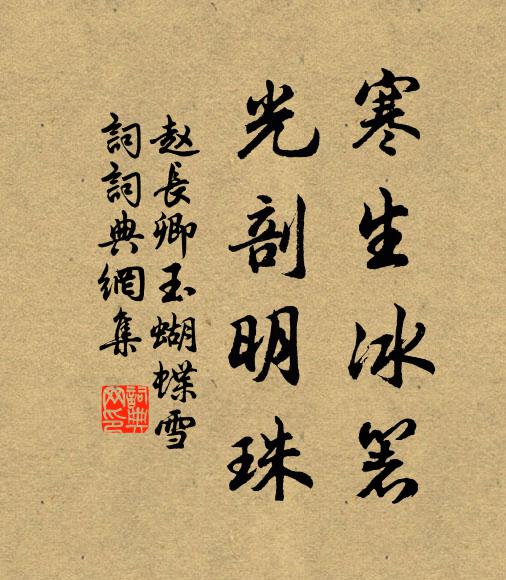 寒生冰箸
光剖明珠
赵長卿玉蝴蝶雪
詞詞典網集
詞典網印